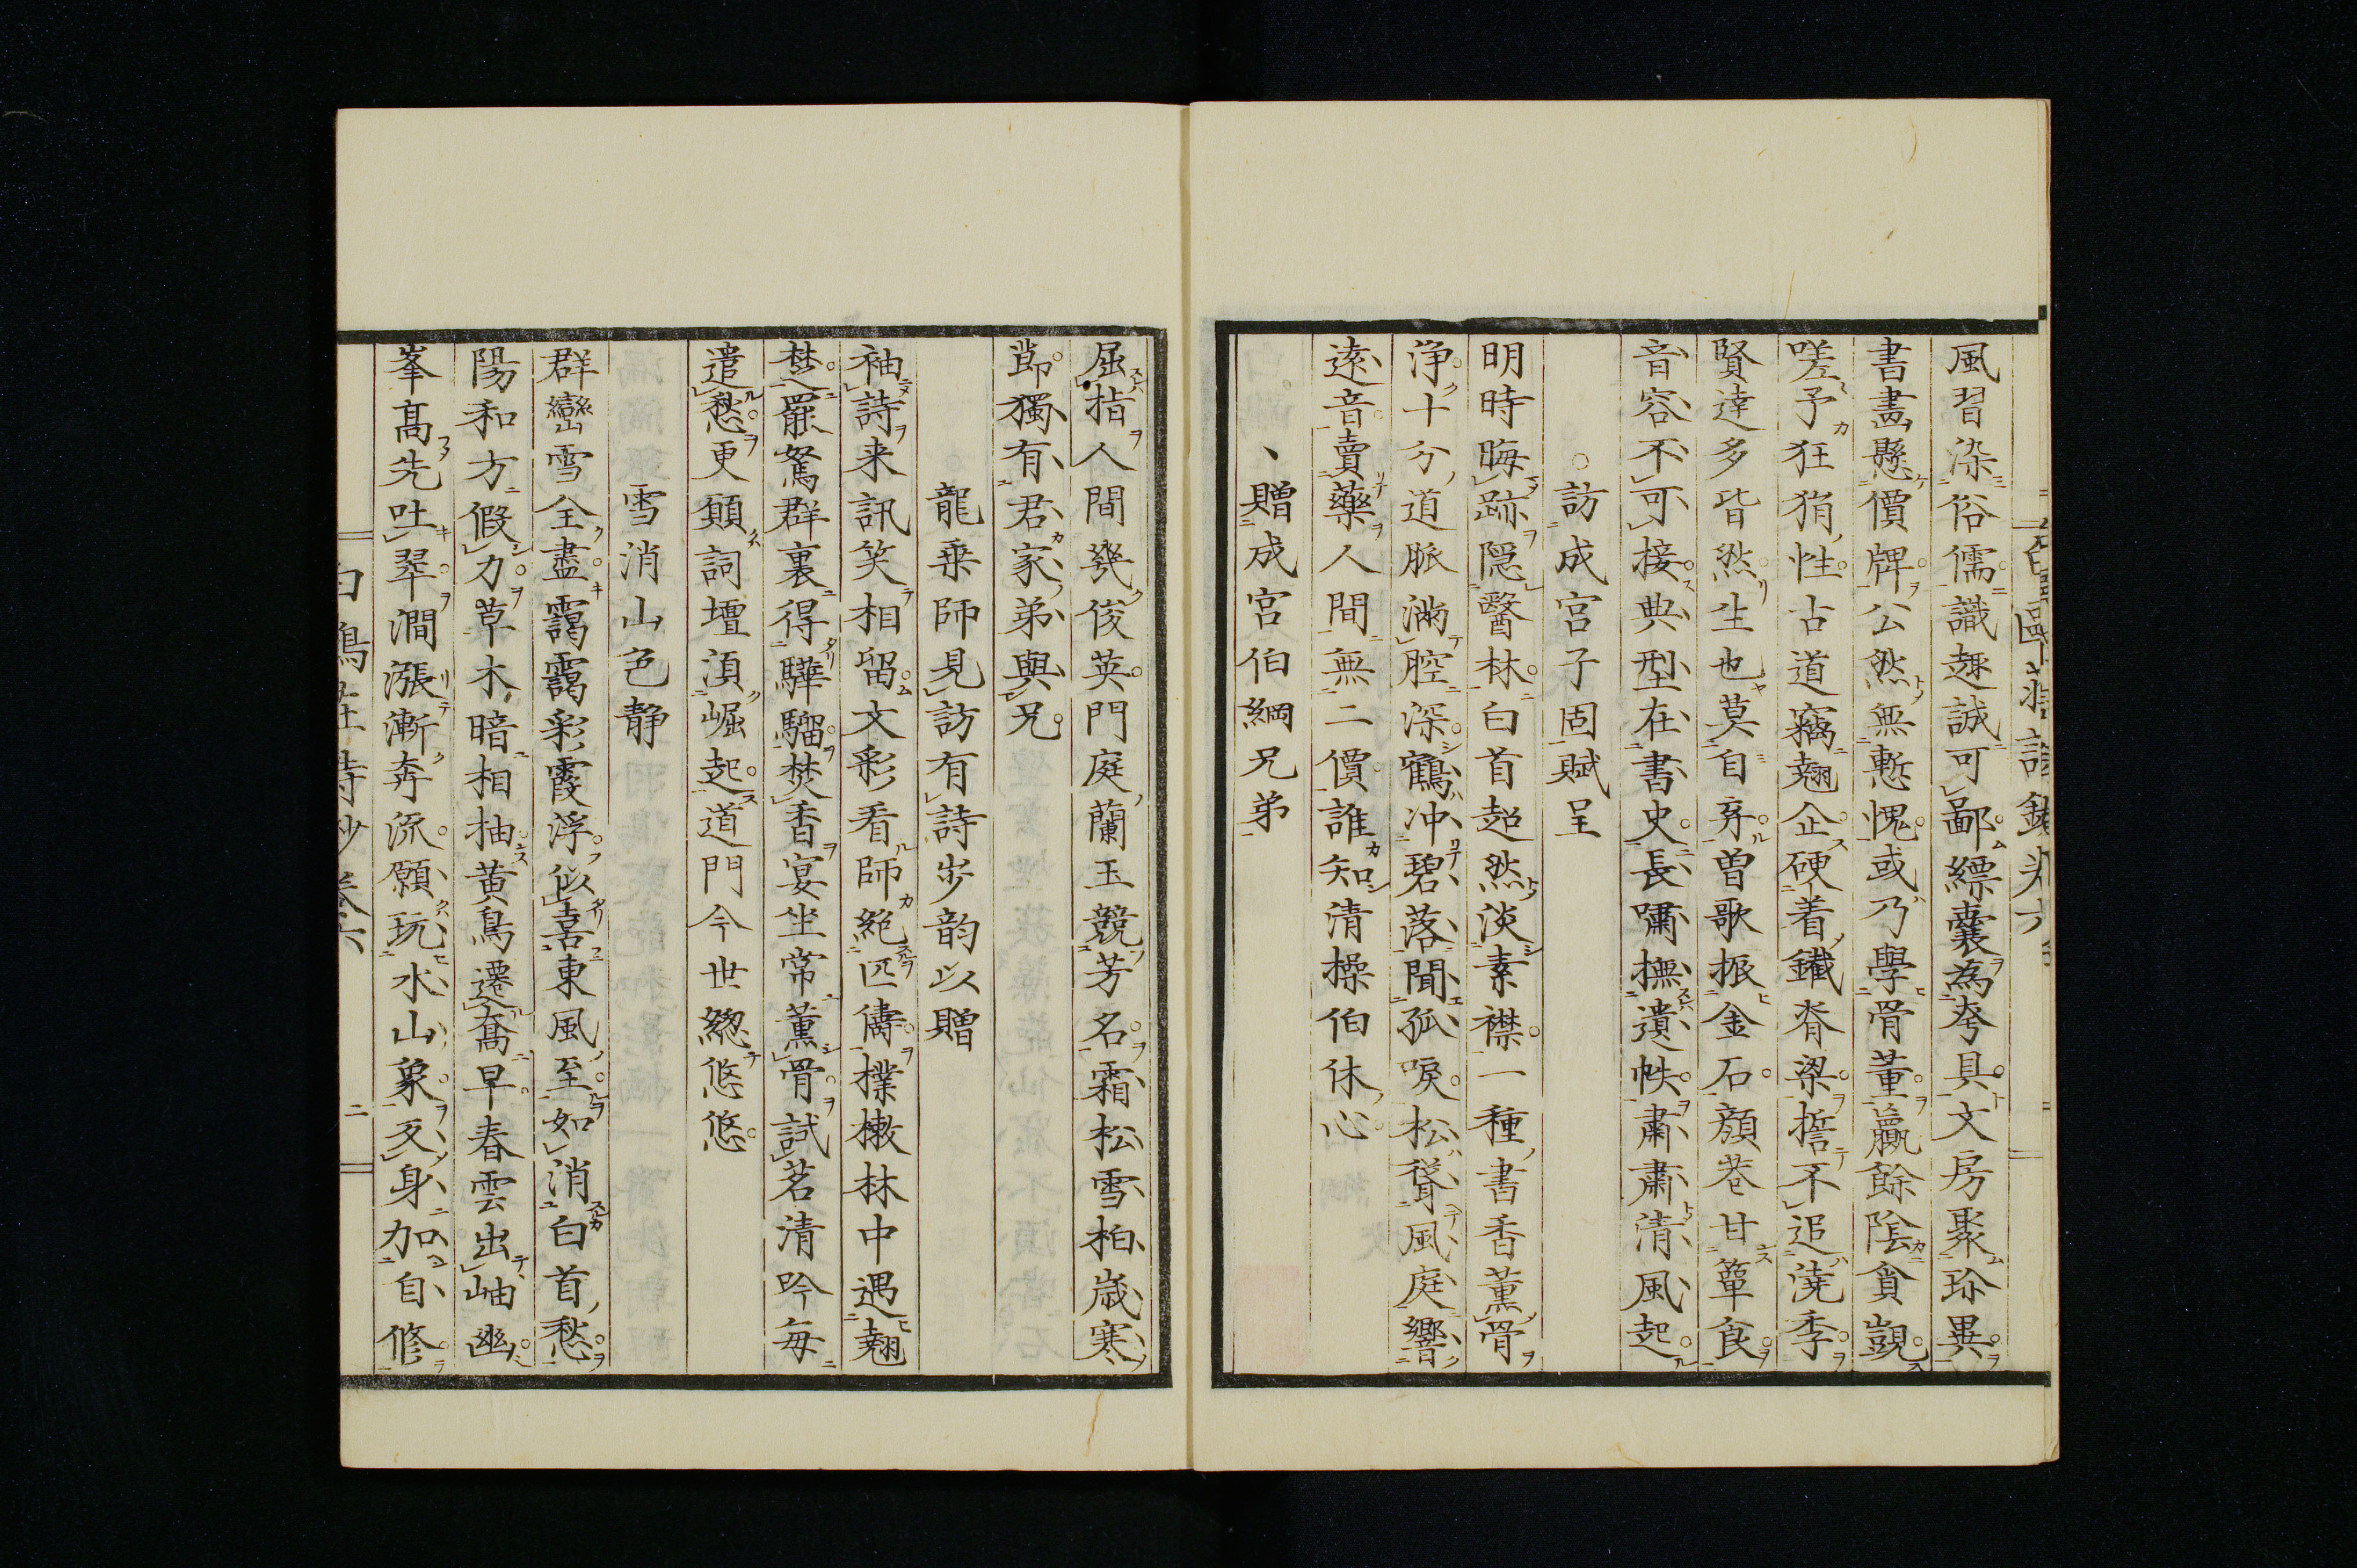 風習染俗儒識趣誠可鄙縹囊為夸具文房聚珍異
書畫懸價牌公然無慙愧或乃學骨董贏餘陰貪覬
嗟予狂狷性古道竊翹企硬着鐵脊梁誓不追澆季
賢達多皆然生也莫自弃曾歌振金石顏巷甘簞食
音容不可接典型在書史長嘯撫遺帙肅肅清風起
訪成宮子固賦呈
明時晦跡隠醫林白首超然淡素襟一種書香薰骨
淨十分道脈滿腔深鶴冲碧落聞孤唳松聳風庭響
遠音賣藥人間無二價誰知清操伯休心
贈成宮伯綱兄弟
屈指人間幾俊英門庭蘭玉競芳名霜松雪柏歲寒
節獨有君家弟與兄
龍乗師見訪有詩步韵以贈
袖詩来訊笑相留文彩看師絶匹儔樸樕林中遇翹
楚罷駑群裏得驊騮焚香宴坐常薰骨試茗清吟每
遣愁更願詞壇湏崛起道門今世緫悠悠
雪消山色靜
群巒雪全盡靄靄彩霞浮似喜東風至如消白首愁
陽和方假力草木暗相抽黄鳥遷喬早春雲出岫幽
峯髙先吐翠澗漲漸奔流願玩水山象爻身加自修
白鳥 詩鈔 卷六 二